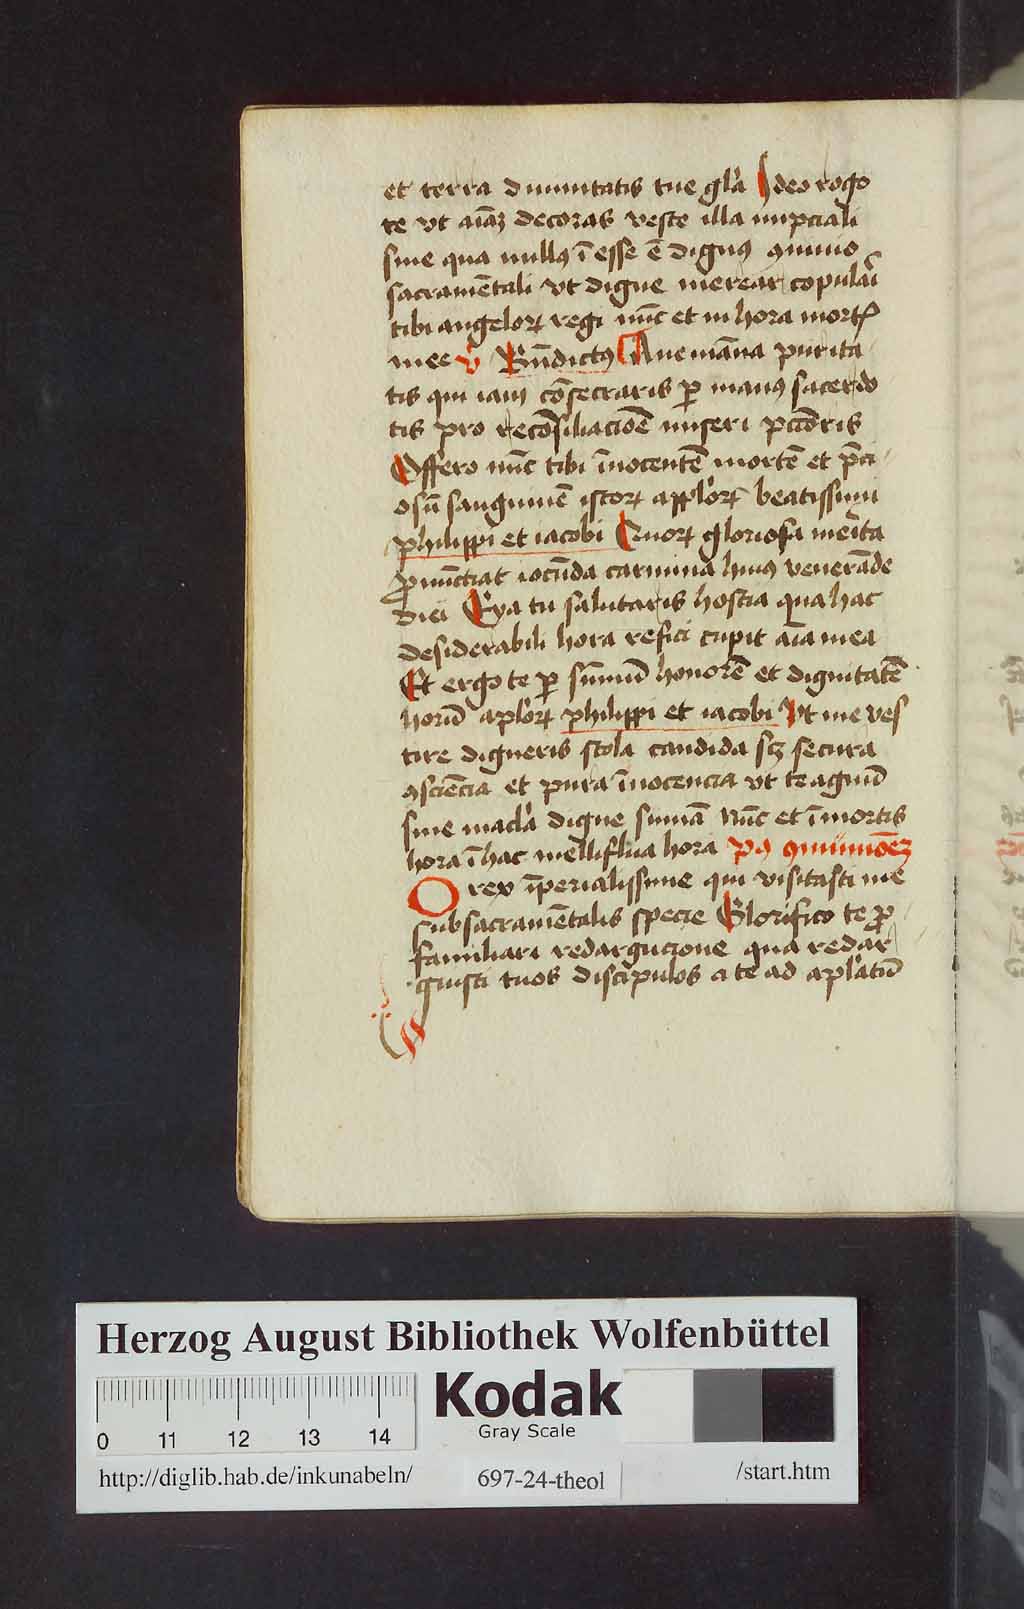 et terra diuinitatis tue glā Ideo rogo
te vt aīaʒ decoras veste illa nupciali
sine qua nullꝯ ī esse ē dignꝯ ꝯuiuio
sacramētali vt digne merear copulāī
tibi angeloꝝ regi nūc et in hora mortꝭ
mee v̄ Bn̄dictꝯ Aue māna purita
tis qui iam cōsecraris ꝑ manꝯ sacerdo
tis pro recōsiliacioē miseri pctōris
Offero nūc tibi īnocentē mortē et p̄ci
osū sanguinē istoꝝ applōꝝ beatissimi
philippi et iacobi Quoꝝ gloriosa merita
ꝓnūctiat iocūda carmina huiꝯ venerāde
diei Eya tu salutaris hostia qua hac
desiderabili hora refici cupit aīa mea
Et ergo te ꝑ sūmū honorē et dignitatē
horū aplōꝝ philippi et iacobi Vt me ves
tire digneris stola candida sʒ secura
ꝯsciēcia et pura īnocencia vt te agnū
sine macl̄a digne sumā Nūc et ī mortis
hora ī hac melliflua hora pꝯ ꝯmūnioēʒ
O rex īperialissime qui visitasti me
sub sacramētalis specie Glorifico te ꝓ
familiari redargucione qua redar
guisti tuos discipulos a te ad aplātū
Herzog August Bibliothek Wolfenbüttel
Kodak
Gray Scale
0 11 12 13 14
http://diglib.hab.de/inkunabeln/ 697-24-theol /start.htm